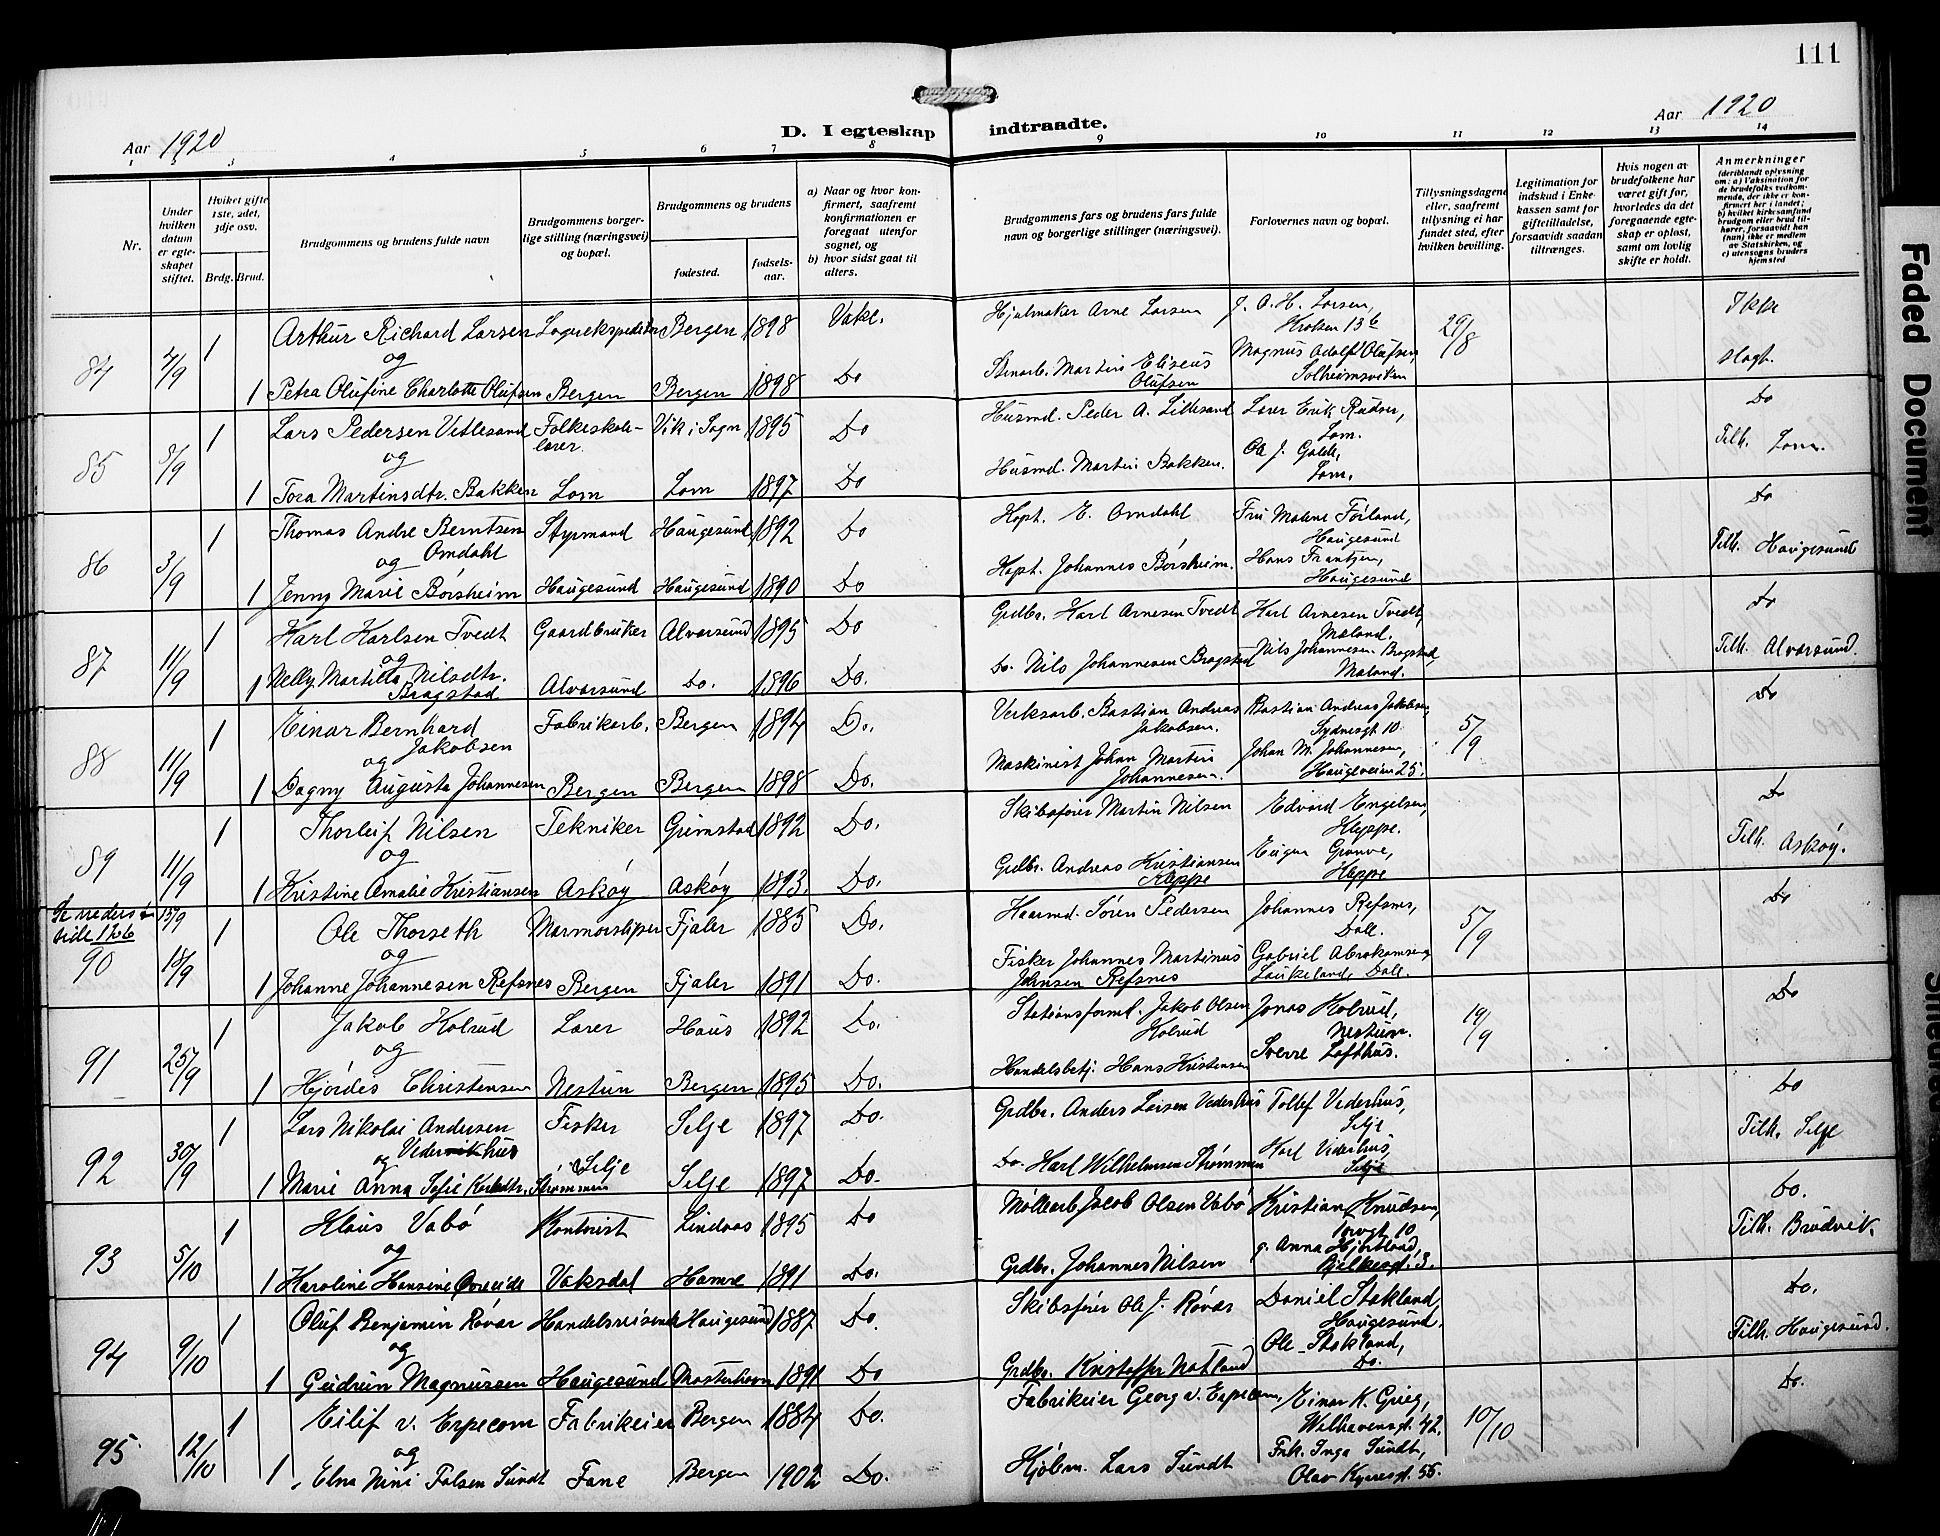 111
Aar 1920
D. I egteskap indtraadte.
Aar 1920
1 3 4 5 6 7 8 9 10 11 12 13 14
Nr.
Under hvilken datum er egteskapet stiftet.
Hviket gifte 1ste, 2det, 3dje osv.
Brdg. Brud.
Brudgommens og brudens fulde navn
Brudgommens borgerlige stilling (næringsvei) og bopæl.
Brudgommens og brudens
fødested.
fødselsaar.
a) Naar og hvor konfirmert, saafremt konfirmationen er foregaat utenfor sognet, og
b) hvor sidst gaat til alters.
Brudgommens fars og brudens fars fulde navn og borgerlige stillinger (næringsvei).
Forlovernes navn og bopæl.
Tillysningsdagene eller, saafremt tillysning ei har fundet sted, efter hvilken bevilling.
Legitimation for indskud i Enkekassen samt for giftetilladelse, forsaavidt saadan tiltrænges.
Hvis nogen av brudefolkene har været gift før, hvorledes da det foregaaende egteskap er opløst, samt om lovlig skifte er holdt.
Anmerkninger
(deriblandt oplysning om: a) Vaksination for de brudefolks vedkommende, der ikke er konfirmert her i landet; b) hvilket kirkesamfund brudgom eller brud tilhører, forsaavidt han (hun) ikke er medlem av Statskirken, og c) utensogns bruders hjemsted
84 4/9 1 Arthur Richard Larsen Bergen 1898 Vakc. Hjulmaker Arne Larsen J. A. H. Larsen, 13 b 29/8 Ikke
og
1 Petra Olufine Charlotte Olufsen Bergen Bergen 1898 Do Martin Eliseus Olufsen Magnus Adolf Olufsen, Solheimsviken slegt.
85 8/9 1 Lars Pedersen Vetlesand Folkeskolelærer Vik i Sogn 1895 Do Husmd. Peder A. Lillesand Lærer Erik Rudser, Lom. Do
og
1 Tora Martinsdtr. Bakken Lom Lom 1897 Do Husmd. Martin Bakken. Ole J. Galde, Lom. Tilh. Lom.
86 3/9 1 Thomas Andre Berntsen Omdahl Styrmand Haugesund 1892 Do Kapt. E. Omdahl Fru Malene Førland, Haugesund Do
og
1 Jenny Marie Børsheim Haugesund Haugesund 1890 Do Kapt. Johannes Børsheim. Hans Frantzen, Haugesund Tilh. Haugesund
87 11/9 1 Karl Karlsen Tvedt Gaardbruker Alversund 1895 Do Grdbr. Karl Arnesen Tvedt Karl Arnesen Tvedt, Mæland. Do
og
1 Nelly Martha Nilsdtr. Bragstad Alversund Do. 1896 Do. Do. Nils Johannesen Bragstad Nils Johannesen Bragstad, Mæland. Tilh. Alversund.
88 11/9 1 Einar Bernhard Jakobsen Fabrikarb. Bergen 1894 Do. Verksarb. Bastian Andreas Jakobsen. Bastian Andreas Jakobsen, Sydnesgt 10. 5/9 Do
og
1 Dagny Augusta Johannesen Bergen Bergen 1898 Do. Maskinist Johan Martin Johannesen. Johan M. Johannesen, Haugeveien 25.
89 11/9 1 Thorleif Nilsen Tekniker Grimstad 1892 Do. Skibsfører Martin Nilsen Edvard Engelsen, Kleppe. Do
og
1 Kristine Amalie Kristiansen Askøy Askøy 1893. Do. Grdbr. Andreas Kristiansen Kleppe Eugen Kleppe Tilh. Askøy.
Se nederst side 126
90 15/9 18/9 1 Ole Thorseth Marmorsliper Fjaler 1885 Do. Søren Pedersen Johannes Refsnes, Dale. 5/9 Do
og
1 Johanne Johannesen Refsnes Bergen Fjaler 1891 Do. Fisker Johannes Martinus Johnsen Refsnes Gabriel Abrahamsen Laukeland, Dale.
91 25/9 1 Jakob Kolrud Lærer Haus 1892 Do. Stationsform. Jakob Olsen Kolrud Jonas Kolrud, Nestun. 19/9 Do
og
1 Hjørdis Christensen Nestun Bergen 1895 Do. Handelsbetj. Hans Kristensen Sverre Lofthus.
92 30/9 1 Lars Nikolai Andersen Vederhus Fisker Selje 1897 Do. Grdbr. Anders Larsen Vederhus Tollef Vederhus, Selje Do
og
1 Marie Anna Sofie Karlsdtr. Strømmen Selje Selje 1897 Do. Do. Karl Wilhelmsen Strømmen Karl Vederhus, Selje Tilh. Selje
93 5/10 1 Klaus Vabø Kontorist Lindaas 1895 Do Møllearb. Jacob Olsen Vabø Kristian Knudsen, Torvgt 10 Do.
og
1 Karoline Hansine Vaksdal Hamre 1891 Do. Grdbr. Johannes Nilsen Anna Hjortland, 3. Tilh. Brudvik.
94 9/10 1 Oluf Benjamin Røvær Handelsreisende Haugesund 1887 Do. Skibsfører Ole J. Røvær Daniel Stokland, Haugesund. Do.
og
1 Gudrun Magnussen Haugesund Mosterhavn 1891 Do Grdbr. Kristoffer Natland Ole Stokland, Do. Tilh. Haugesund.
95 12/10 1 Eilif v. Erpecom Fabrikeier Bergen 1884 Do. Fabrikeier Georg v. Erpecom, Einar K. Grieg, Welhavensgt. 42. 10/10 Do.
og
1 Elna Nini Falsen Sundt Fane Bergen 1902 Do. Lars Sundt Frk. Inga Sundt, Olav Kyrresgt. 55.
Faded Document